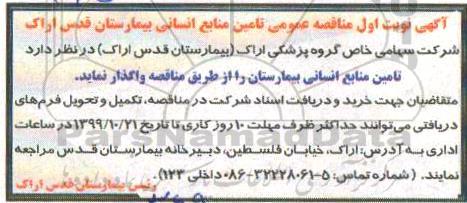 آگهی نوبت اول مناقصه عمومی تامین منابع انسانی بیمارستان قدس اراک
شرکت سهامی خاص گروه پزشکی اراک (بیمارستان قدس اراک) در نظر دارد
تامین منابع انسانی بیمارستان را از طریق مناقصه واگذار نماید.
متقاضیان جهت خرید و دریافت اسناد شرکت در مناقصه، تکمیل و تحویل فرم‌های
دریافتی می‌توانند حداکثر ظرف مهلت ۱۰ روز کاری تا تاریخ ۱۳۹۹/۱۰/۲۱ در ساعات
اداری به آدرس: اراک، خیابان فلسطین، دبیرخانه بیمارستان قدس مراجعه
نمایند. (شماره تماس: ۵-۳۲۲۲۸۰۶۱-۰۸۶ داخلی ۱۲۳).
رئیس بیمارستان قدس اراک